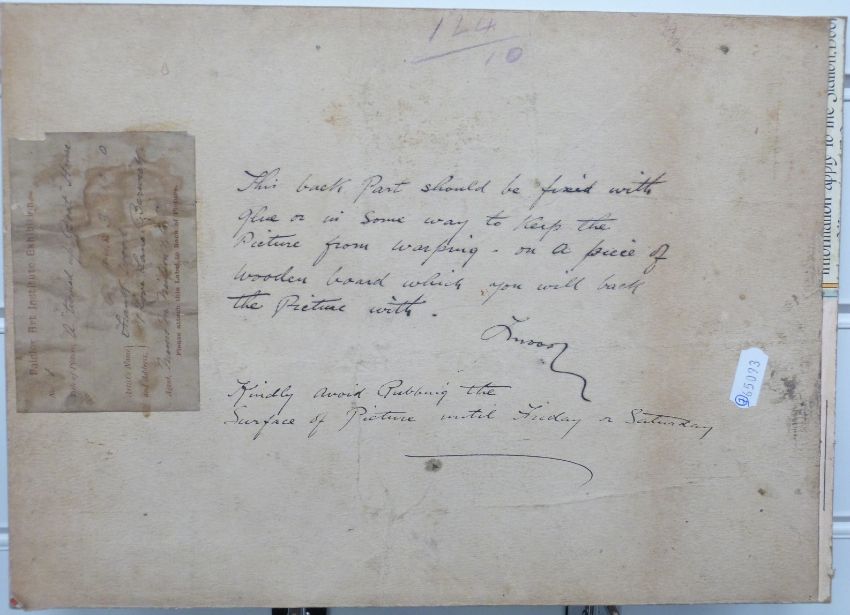 124
10
This back Part should be fixed with
Glue or in some way to keep the
Picture from warping - on a piece of
wooden board which you will back
the Picture with.
Kindly avoid Rubbing the
Surface of Picture until Friday or Saturday
Art Institute Exhibition
No.
Artist's Name
and Address
Please attach this Label to Back of Picture.
65093
information apply to the Station